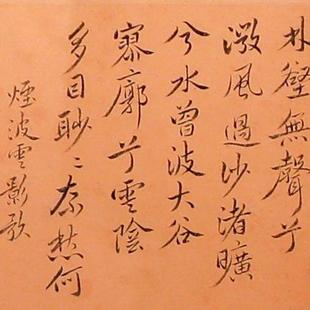 林壑無聲兮
風過沙渚曠
兮水曾波大谷
寥廓兮雲陰
多目眇〻奈愁何
煙波雲影歌